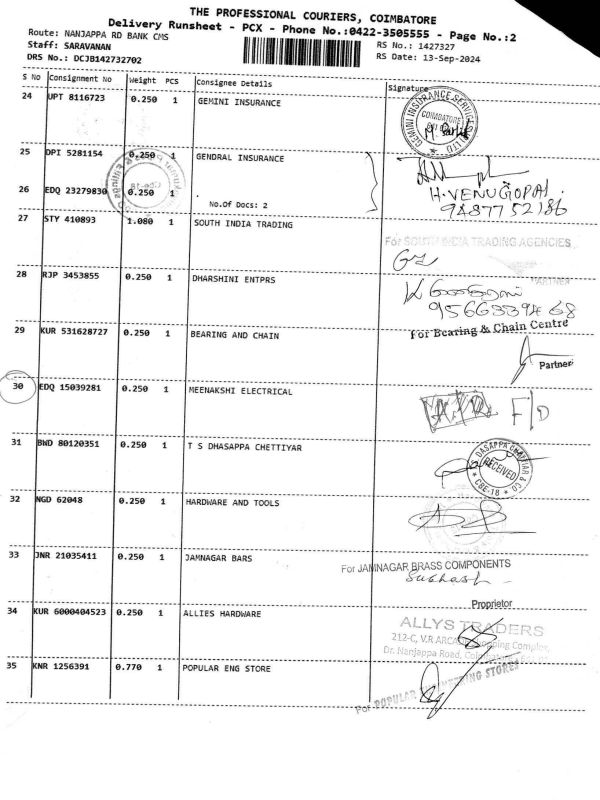 THE PROFESSIONAL COURIERS, COIMBATORE
Delivery Runsheet - PCX - Phone No.:0422-3505555 - Page No.:2
Route: NANJAPPA RD BANK CMS
RS No.: 1427327
Staff: SARAVANAN
RS Date: 13-Sep-2024
DRS No.: DCJB142732702
S No Consignment No Weight PCS Consignee Details Signature
24 UPT 8116723 0.250 1 GEMINI INSURANCE
GEMINI INSURANCE SERVICE
COIMBATORE
25 DPI 5281154 0.250 1 GENDRAL INSURANCE
H.VENUGOPAL.
26 EDQ 23279830 0.250 1
No.Of Docs: 2
9487752186
27 STY 410893 1.080 1 SOUTH INDIA TRADING
For SOUTH INDIA TRADING AGENCIES
PARTNER
28 RJP 3453855 0.250 1 DHARSHINI ENTPRS
9566339468
29 KUR 531628727 0.250 1 BEARING AND CHAIN
For Bearing & Chain Centre
Partner
30 EDQ 15039281 0.250 1 MEENAKSHI ELECTRICAL
F/D
31 BWD 80120351 0.250 1 T S DHASAPPA CHETTIYAR
RECEIVED
CBE-18
32 NGD 62048 0.250 1 HARDWARE AND TOOLS
33 JNR 21035411 0.250 1 JAMNAGAR BARS
For JAMNAGAR BRASS COMPONENTS
Subhash
Proprietor
34 KUR 6000404523 0.250 1 ALLIES HARDWARE
ALLYS TRADERS
212-C, V.R ARCADE Shopping Complex,
Dr. Nanjappa Road,
35 KNR 1256391 0.770 1 POPULAR ENG STORE
For POPULAR ENGINEERING STORES